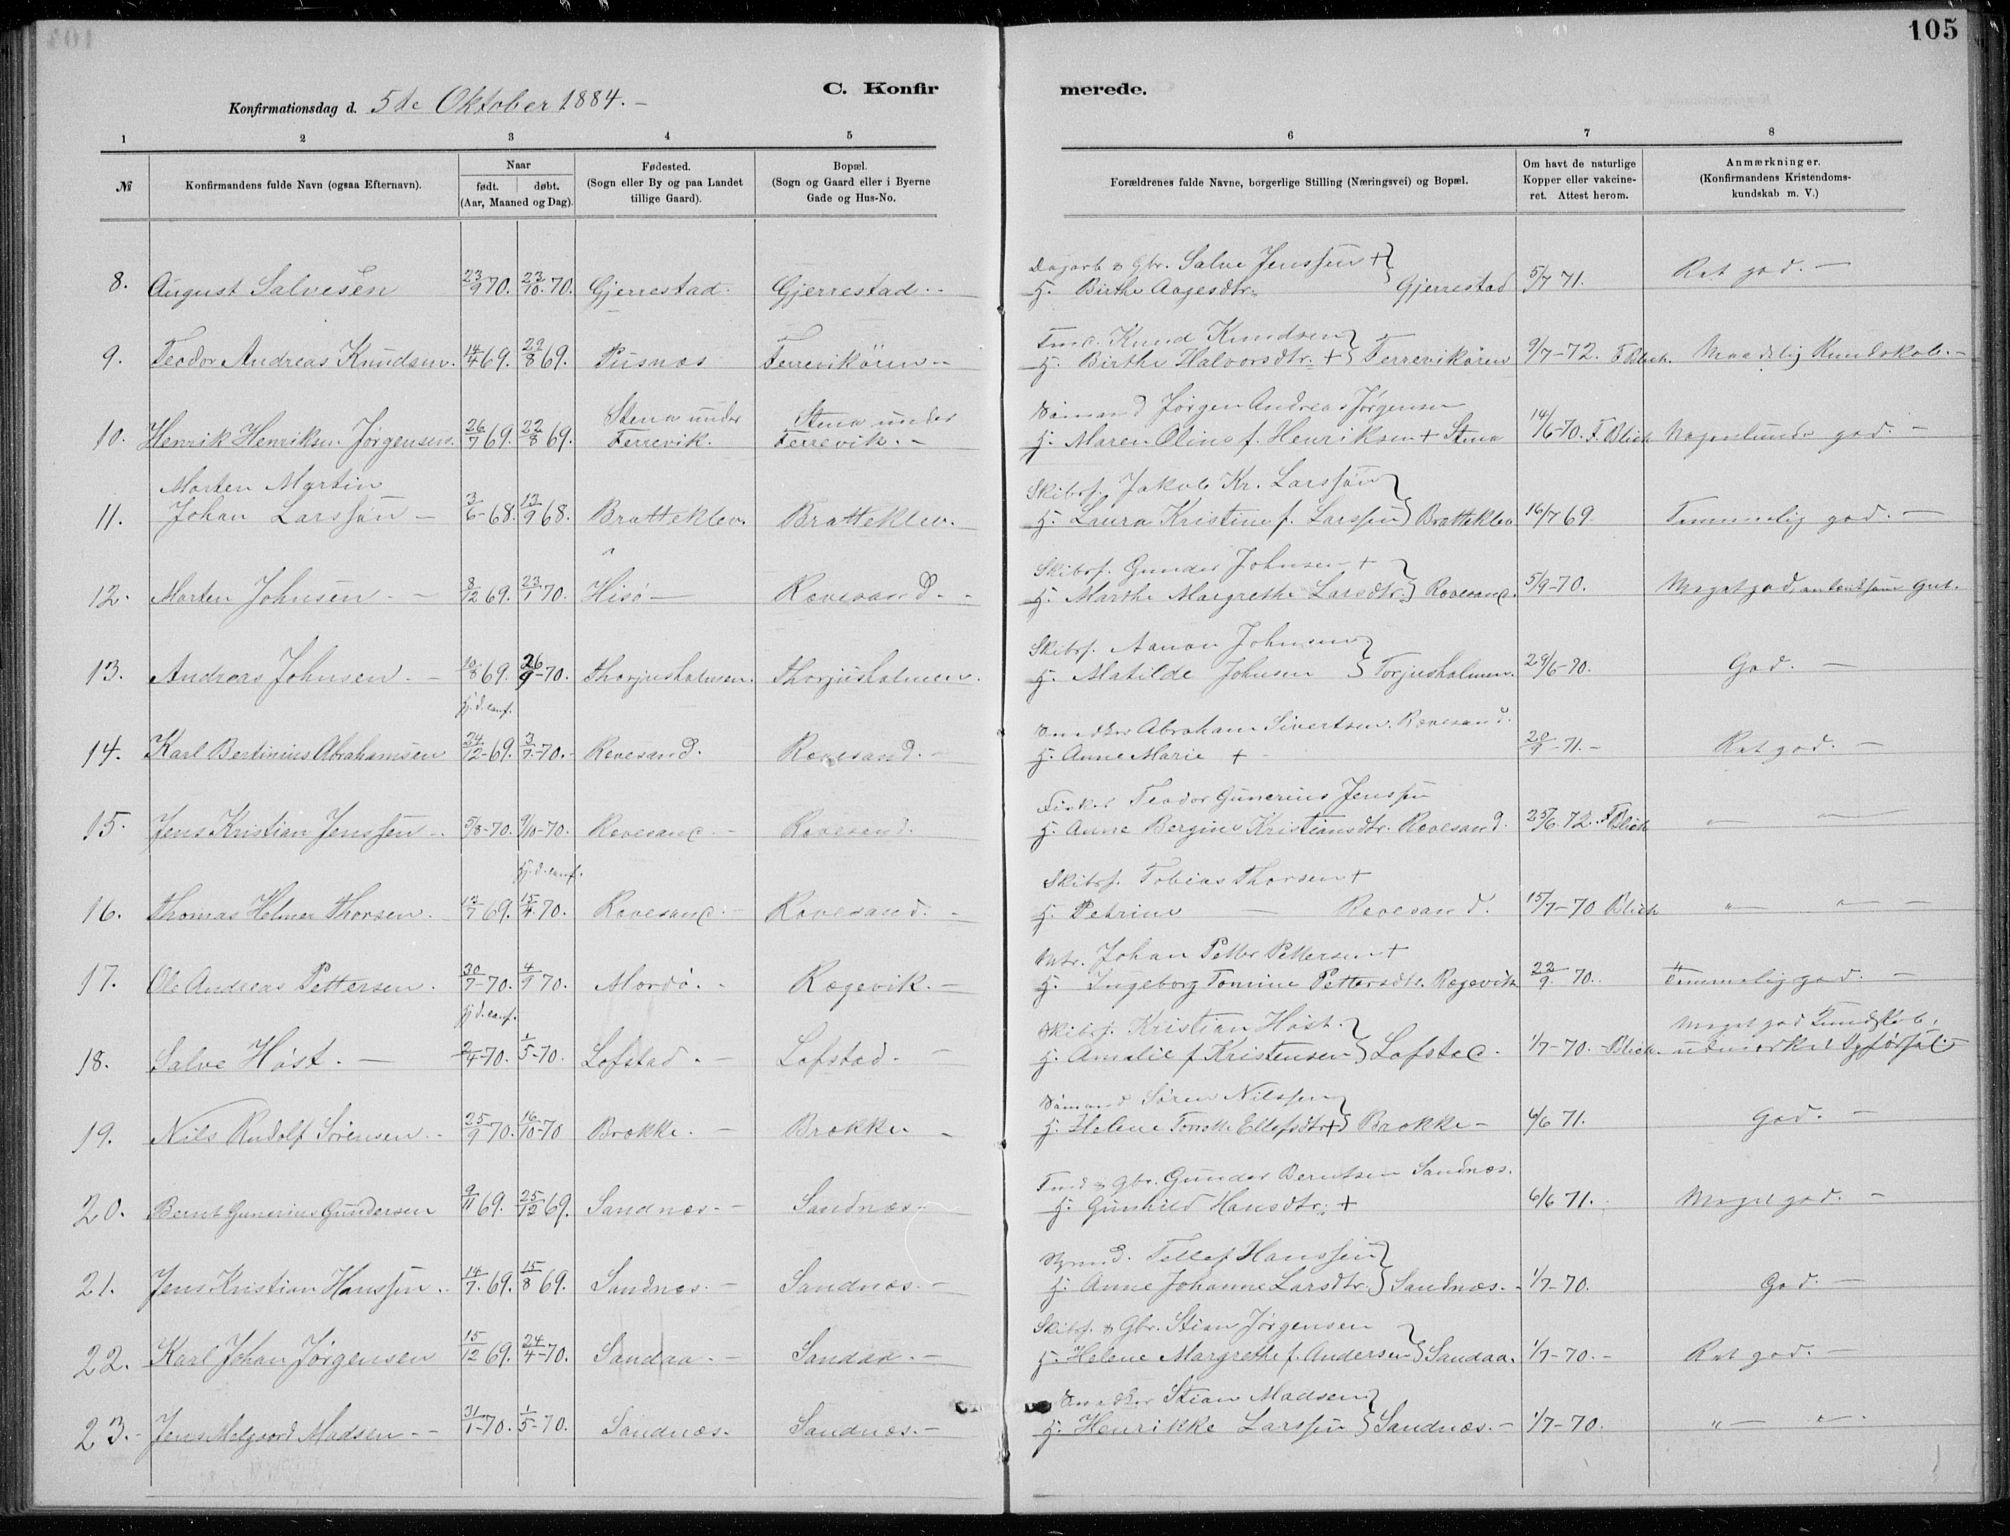 105
C. Konfirmerede.
Konfirmationsdag d. 5te Oktober 1884. -
1 2 3 4 5 6 7 8
№ Konfirmandens fulde Navn (ogsaa Efternavn). Naar født. døbt. (Aar, Maaned og Dag). Fødested. (Sogn eller By og paa Landet tillige Gaard). Bopæl. (Sogn og Gaard eller i Byerne Gade og Hus-No. Forældrenes fulde Navne, borgerlige Stilling (Næringsvei) og Bopæl. Om havt de naturlige Kopper eller vakcineret. Attest herom. Anmærkninger. (Konfirmandens Kristendomskundskab m. V.)
Dagarb & Gbr. Salve Jenssen +
8. August Salvesen 23/9 70. 23/10 70. Gjerrestad. Gjerrestad. - H. Birthe Aagesdtr. Gjerrestad 5/7 71. Ret god. -
Knud Knudsen
9. Teodor Andreas Knudsen. 14/4 69. 29/8 69. Pusnæs Terrevikören - H. Birthe Halvorsdtr. + Terrevikören 9/7-72. F. Blich. Maadelig Kundskab. -
Stena under Stena under Sömand Jörgen Andreas Jörgensen
10. Henrik Henriksen Jörgensen. 26/7 69. 22/8 69. Terrevik. Terrevik. - H. Maren Oline f. Henriksen + Stena 14/6-70. F. Blich Nogenlunde god. -
Morten Martin Skibsf. Jakob Kr. Larssen
11. Johan Larssen - 3/6-68. 13/9 68. Bratteklev. Bratteklev. H. Laura Kristine f. Larssen Bratteklev 16/7 69. Temmelig god. -
Skibsf. Gunder Johnsen +
12. Morten Johnsen - 8/12 69. 23/1 70. Hisö - Revesand. - H. Marthe Margrethe Larsdtr. Revesand. 5/9-70. Meget god,
Skibsf. Aanon Johnsen
13. Andreas Johnsen. - 10/8 69. 26/9-70. Thorjusholmen. Thorjusholmen. H. Matilde Johnsen Torjusholmen. 29/6-70. God. -
Hj. d. conf.
Abraham Sivertsen. Revesand.
14. Karl Bertinius Abrahamsen 24/12-69. 3/7-70. - Revesand. Revesand. - H. Anne Marie + 20/9-71. - Ret god. -
Fisker Teodor Gunerius Jenssen
15. Jens Kristian Jenssen - 5/8-70. 9/10-70. Revesand. - Revesand. H. Anne Bergine Kristiansdtr. Revesand. 25/6 72. F Blich " - " -
Hj. d. conf. Skibsf. Tobias Thorsen +
16. Thomas Helmer Thorsen. 12/7 69. 15/4 70. Revesand. - Revesand. - H. Petrine - Revesand. 15/7-70 Blich " - " -
Johan Petter Pettersen +
17. Ole Andreas Pettersen. 30/7-70. 4/9 70. Mordö. - Rægevik. - H. Ingeborg Tomine Pettersdtr. Rægevik 22/9 70. Temmelig god. -
Hj. d. conf. Skibsf. Kristian Höst. Meget god Kundskab,
18. Salve Höst. - 2/4-70. 1/5-70. Lofstad. - Lofstad. - H. Amalie f. Kristensen Lofstad. 1/7-70. - Blich. udmærket
Sömand Sören Nilssen
19. Nils Rudolf Sörensen. - 25/9 70. 16/10-70 Brække. - Brække - H. Helene Ellefsdtr + Brække - 6/6 71. God. -
& Gbr. Gunder Berntsen Sandnæs.
20. Bernt Gunerius Gundersen 9/11 69. 25/12 69. Sandnæs. - Sandnæs. - H. Gunhild Hansdtr. + 6/6 71. Meget god. -
Tellef Hanssen
21. Jens Kristian Hanssen. - 14/7 69. 15/8 69. Sandnæs. - Sandnæs. - H. Anne Johanne Larsdtr. Sandnæs. - 1/7-70. God. -
Skibsf. & Gbr. Stian Jörgensen
22. Karl Johan Jörgensen 15/12 69. 24/4-70. Sandaa. - Sandaa. - H. Helene Margrethe f. Andersen Sandaa. 1/7-70. - Ret god. -
Stian Madsen
23. - Jens Melgaard Madsen. - 31/1-70. 1/5-70. Sandnæs. Sandnæs. - H. Henrikke Larssen Sandnæs. - 1/7-70. " - " -